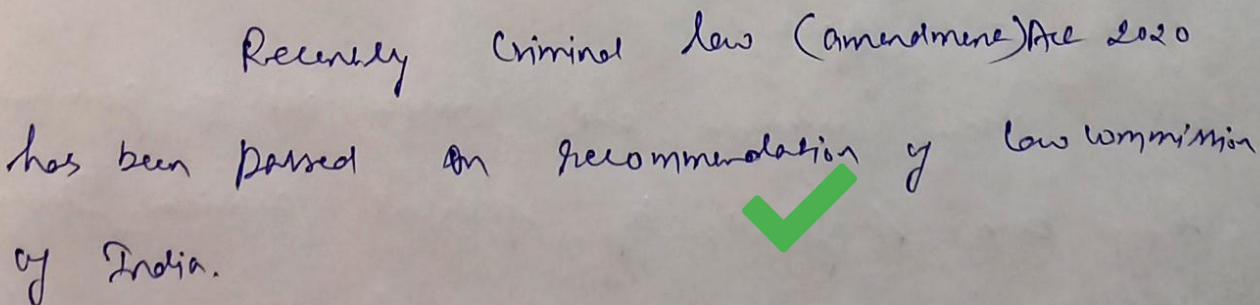 Recently Criminal law (amendment) Act 2020
has been passed on recommendation of law commission
of India.